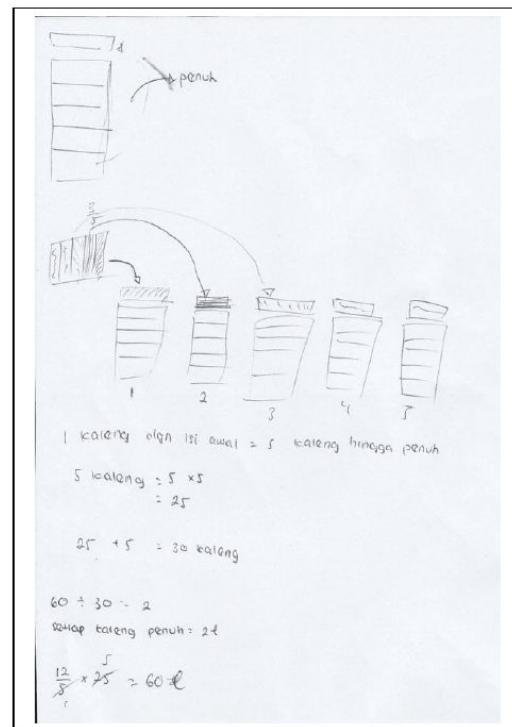 penuh
3/5
1 2 3 4 5
1 kaleng dgn isi awal = 5 kaleng hingga penuh
5 kaleng = 5 × 5
= 25
25 + 5 = 30 kaleng
60 ÷ 30 = 2
setiap kaleng penuh = 2 l
12/5 × 25 5 = 60 l